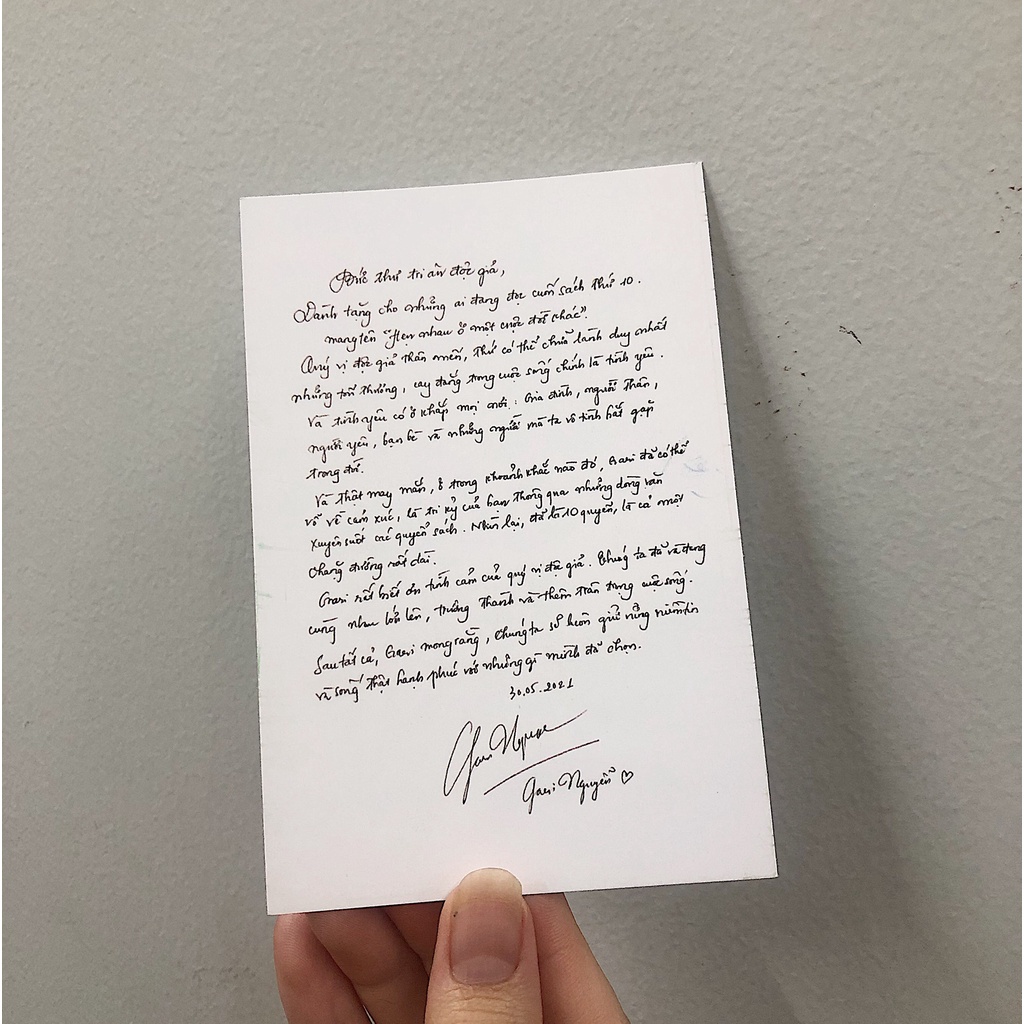 Bức thư tri ân độc giả,
Dành tặng cho những ai đang đọc cuốn sách thứ 10.
mang tên "Hẹn nhau ở một cuộc đời khác".
Quý vị độc giả thân mến, thứ có thể chữa lành duy nhất
những tổn thương, cay đắng trong cuộc sống chính là tình yêu.
Và tình yêu có ở khắp mọi nơi: Gia đình, người thân,
người yêu, bạn bè và những người mà ta vô tình bắt gặp
trong đời.
Và thật may mắn, ở trong khoảnh khắc nào đó, Gari đã có thể
vỗ về cảm xúc, là tri kỷ của bạn thông qua những dòng văn
xuyên suốt các quyển sách. Nhìn lại, đã là 10 quyển, là cả một
chặng đường rất dài.
Gari rất biết ơn tình cảm của quý vị độc giả. Chúng ta đã và đang
cùng nhau lớn lên, trưởng thành và thêm trân trọng cuộc sống.
Sau tất cả, Gari mong rằng, chúng ta sẽ luôn giữ vững niềm tin
và sống thật hạnh phúc với những gì mình đã chọn.
30.05.2021
Gari Nguyen
Gari Nguyễn ♡